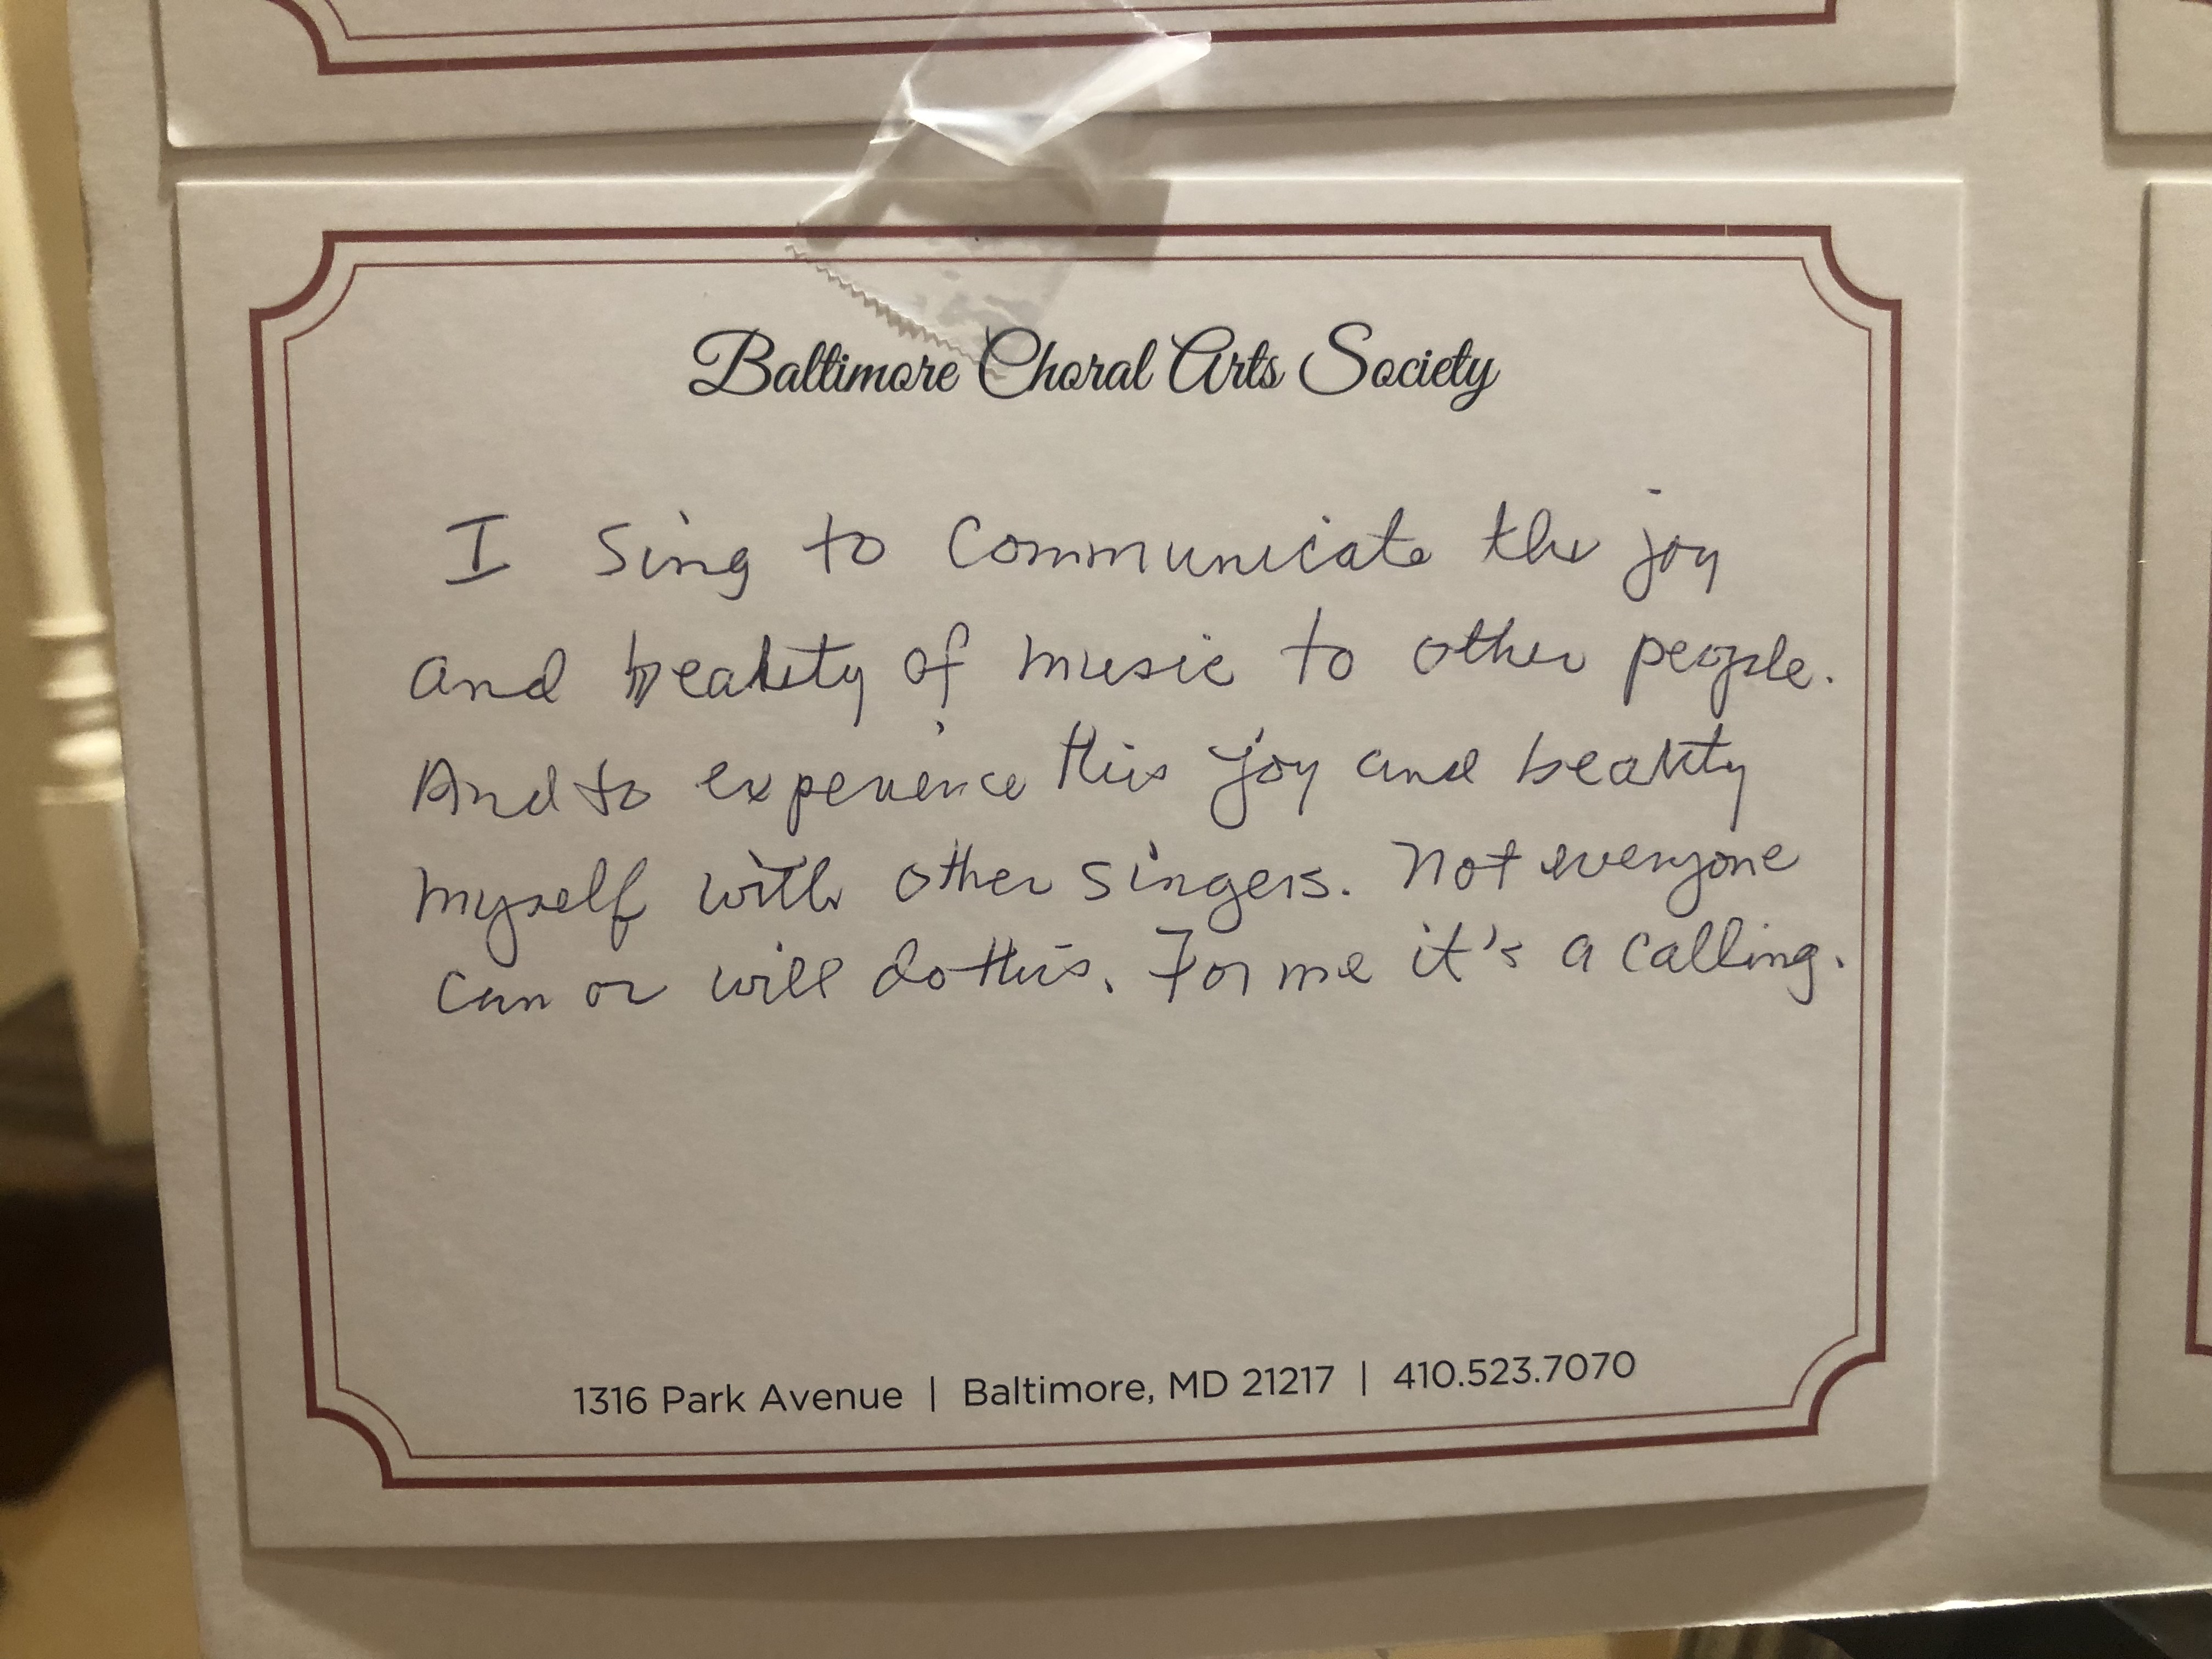 Baltimore Choral Arts Society
I sing to communicate the joy
and beauty of music to other people.
And to experience this joy and beauty
myself with other singers. Not everyone
can or will do this. For me it's a calling.
1316 Park Avenue | Baltimore, MD 21217 | 410.523.7070